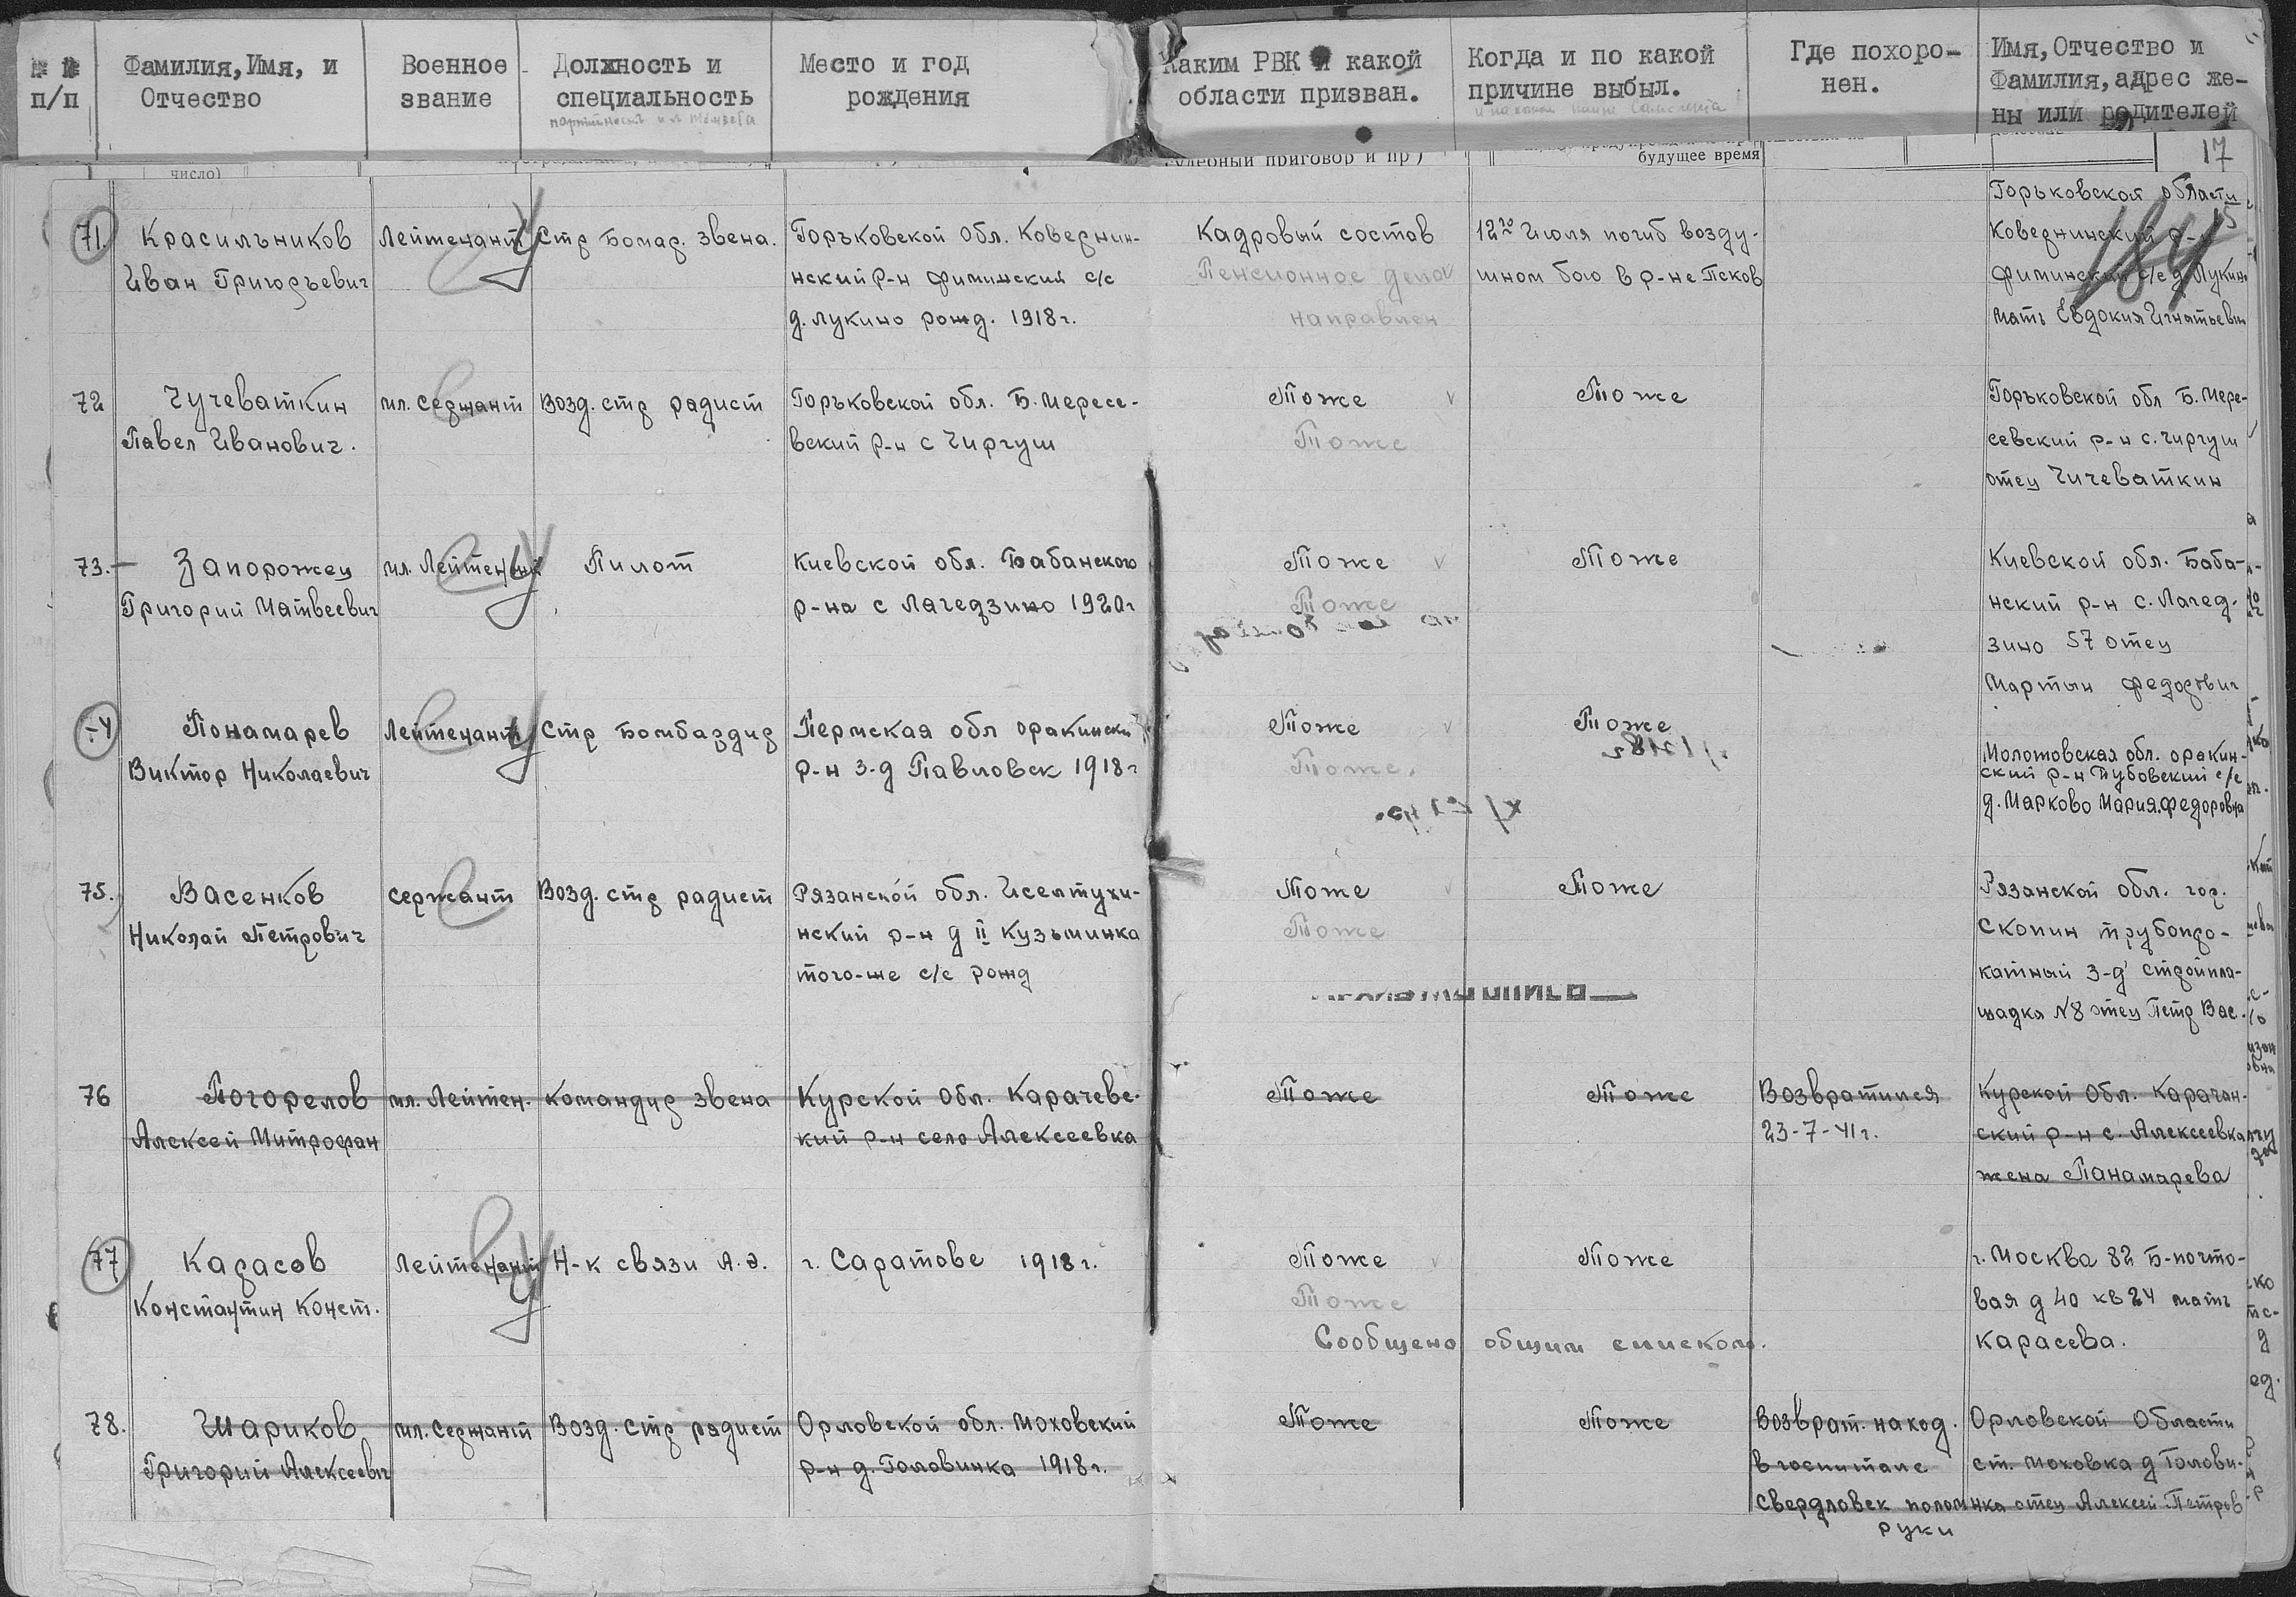 № № п/п
Фамилия, Имя, и Отчество
Военное звание
Должность и специальность
Место и год рождения
Каким РВК и какой области призван.
Когда и по какой причине выбыл.
Где похоронен.
Имя, Отчество и Фамилия, адрес жены или родителей
число)
судебный приговор и пр)
будущее время
17
71.
Красильников
Иван Григорьевич
Лейтенант
Стр бомар. звена.
Горьковской обл. Ковернин-
нский р-н Фиминский с/с
д. Лукино рожд. 1918 г.
Кадровый состав
Пенсионное дело
направлен
12го Июля погиб возду-
шном бою в р-не Псков
Горьковской области
Ковернинский р-н
Фиминский с/с д Лукино
Мать Евдокия Игнатьевн
72
Чучеваткин
Павел Иванович.
мл. сержант
Возд. стр радист
Горьковской обл. Б. Мересе-
вский р-н с Чиргуш
Тоже
Тоже
Тоже
Горьковской обл Б. Мере-
севский р-н с. Чиргуш
отец Чичеваткин
73.
Запорожец
Григорий Матвеевич
мл. Лейтенант
Пилот
Киевской обл. Бабанского
р-на с Лагедзино 1920 г
Тоже
Тоже
Тоже
Киевской обл. Баба-
нский р-н с. Лагед-
зино 57 отец
Мартын Федорович
74
Понамарев
Виктор Николаевич
Лейтенант
Стр Бомбардир
Пермская обл оракински
р-н з-д Павловск 1918 г
Тоже
Тоже.
Тоже
Молотовская обл. оракин-
ский р-н Тубовский с/с
д. Марково Мария Федоровна
75.
Васенков
Николай Петрович
сержант
Возд. стр радист
Рязанской обл. Иселтухи-
нский р-н д II Кузьминка
того-же с/с рожд
Тоже
Тоже
Тоже
Рязанской обл. гор.
Скопин трубопро-
катный з-д стройпла-
щадка N8 отец Петр Вас.
76
Погорелов
Алексей Митрофан
мл. Лейтен.
командир звена
Курской Обл. Карачевс-
кий р-н село Алексеевка
Тоже
Тоже
Возвратился
23-7-41 г.
Курской Обл. Карачан-
ский р-н с. Алексеевка
жена Панамарева
77
Карасов
Константин Конст.
Лейтенант
Н-к связи А.Э.
г. Саратове 1918 г.
Тоже
Тоже
Тоже
Сообщено общим списком.
г. Москва 82 Б-почто-
вая д 40 кв 24 мать
Карасева.
78.
Шариков
Григорий Алексеевич
мл. Сержант
Возд. стр радист
Орловской обл. Моховский
р-н д. Головинка 1918 г.
Тоже
Тоже
Возврат. наход.
в госпитале
Свердловск полом
руки
Орловской Области
ст. Моховка д Голови-
нка отец Алексей Петров